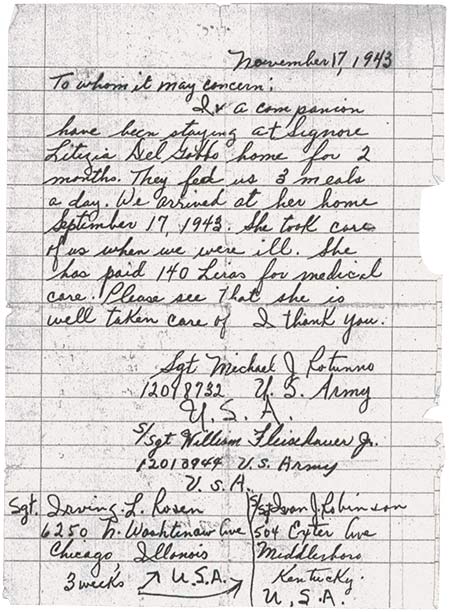 November 17, 1943
To whom it may concern:
I & a companion
have been staying at Signore
Litizia Del Gobbo home for 2
months. They fed us 3 meals
a day. We arrived at her home
September 17, 1943. She took care
of us when we were ill. She
has paid 140 Liras for medical
care. Please see that she is
well taken care of I thank you.
Sgt Michael J Rotunno
12018732 U.S. Army
U.S.A.
S/Sgt William Fleischauer Jr.
12013944 U.S. Army
U.S.A.
Sgt. Irving L. Rosen
6250 N. Washtenaw Ave
Chicago, Illonois
3 weeks U.S.A.
S/Sgt Ivan J. Robinson
504 Exter Ave
Middlesboro
Kentucky.
U.S.A.